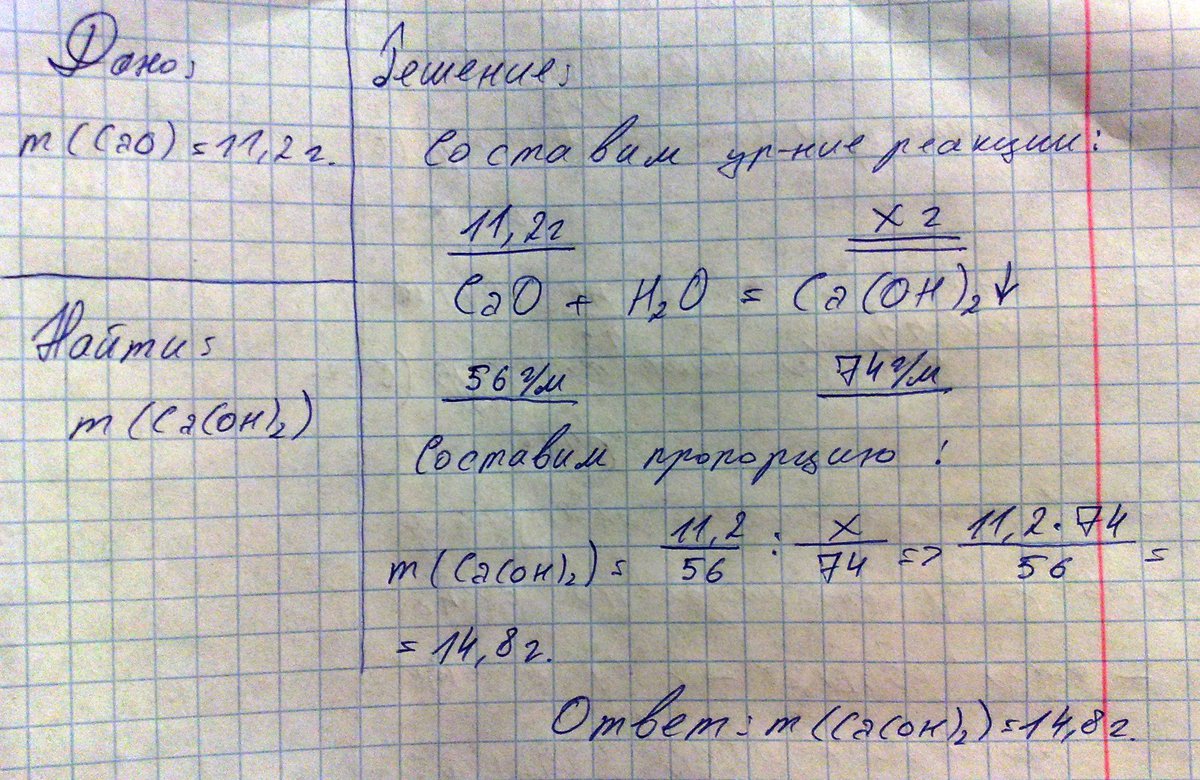 Дано:
m(CaO) = 11,2 г.
Найти:
m(Ca(OH)₂)
Решение:
Составим ур-ние реакции:
11,2 г x г
CaO + H₂O = Ca(OH)₂↓
56 г/м 74 г/м
Составим пропорцию:
m(Ca(OH)₂) = 11,2/56 : x/74 => 11,2·74/56 =
= 14,8 г.
Ответ: m(Ca(OH)₂) = 14,8 г.